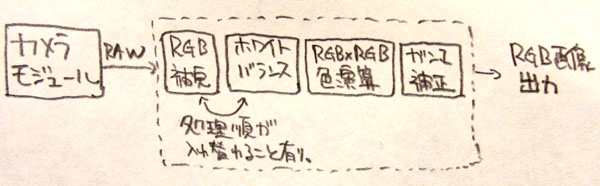 カメラ
モジュール
RAW
RGB
補完
ホワイト
バランス
RGB×RGB
色演算
ガンマ
補正
RGB画像
出力
処理順が
入れ替わること有り。